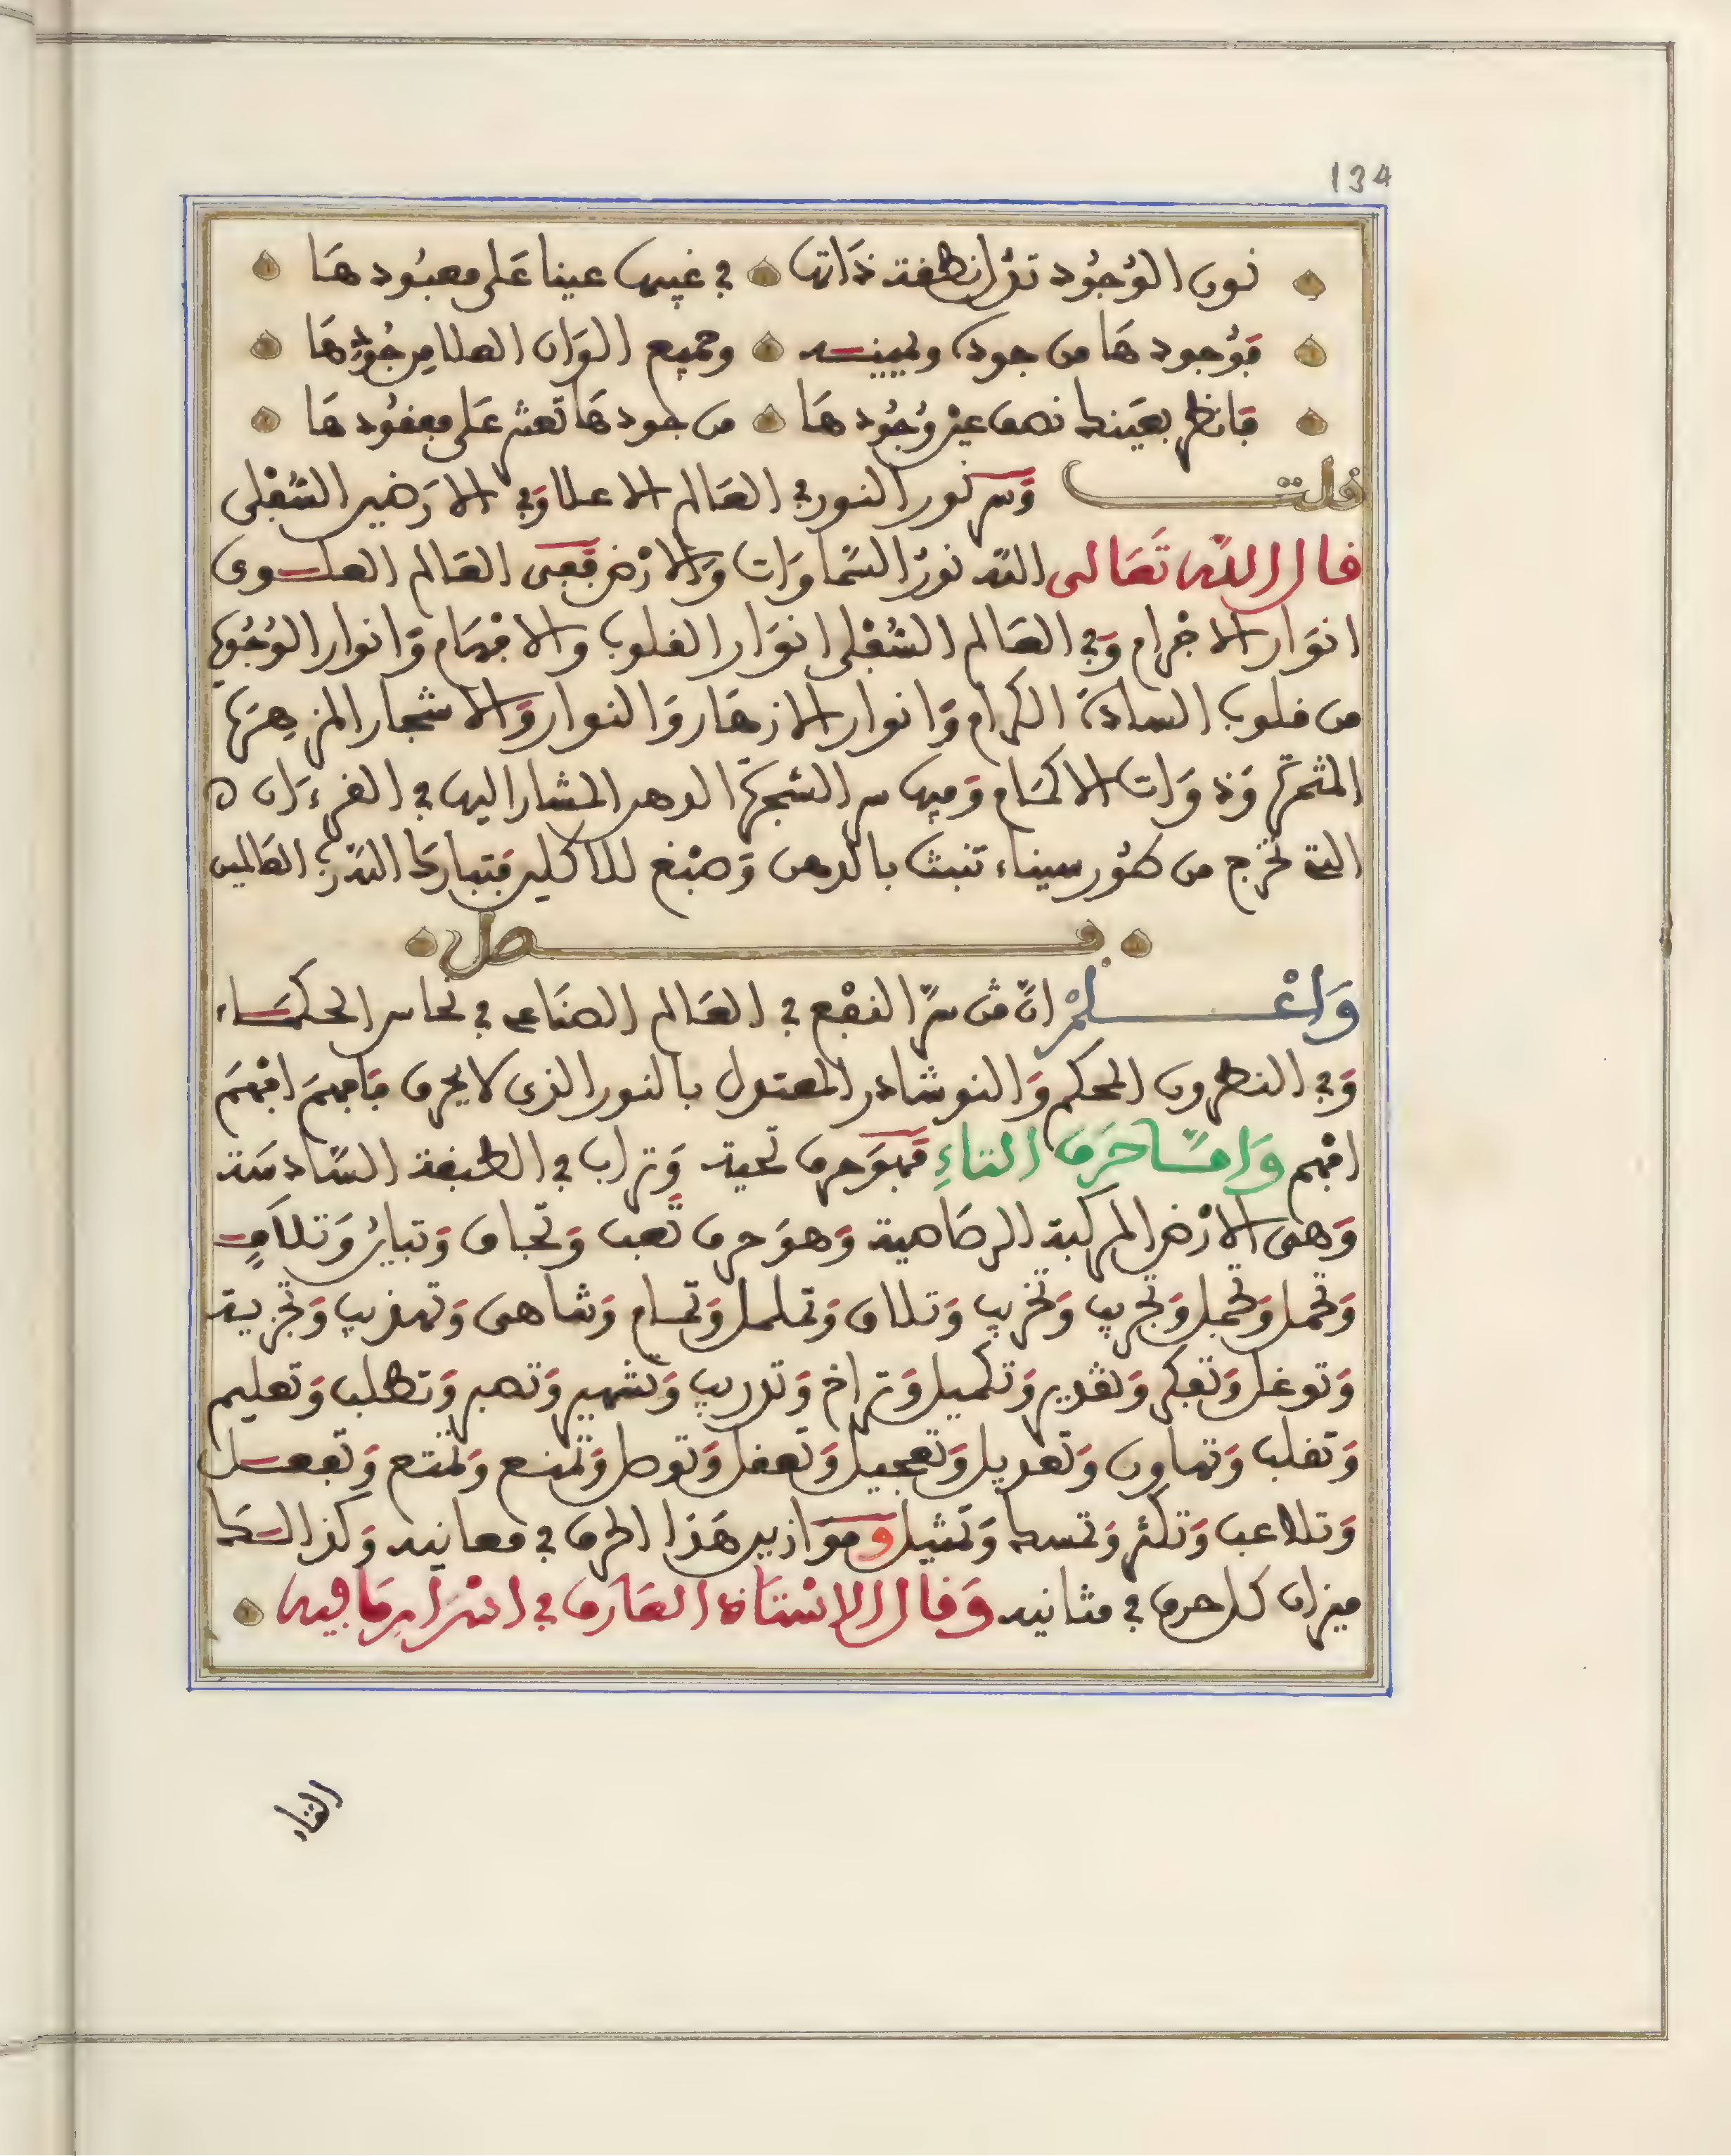 134
نون الوجود تدل نطفة ذاتها في غيبها عينا على معبودها
فوجودها من جوده ويمينه وجميع الوان العلا من جودها
فانظر بعينك نصف عين وجودها من جودها تعثر على مفقودها
قلت وسر نور النور في العالم الاعلا وفي الارضين السُّفْلى
قال الله تَعَالى الله نورُ السَّماوَات وَالارْض ففى العَالم العلوى
انوَار الاجْرام وَفي العَالم السُّفْلى انوَار القلوب والافْهَام وَانوار الوُجُوه
من قلوب السادة الكرام وَانوار الازهَار وَالنوار وَالاشجار المزهِرَة
المثمرة وَذوَات الاكمَام وَفيها سر الشجرة الدهر المشار اليها في القرءَان ه
التي تخرج من طُور سيناء تنبت بالدهن وَصبْغ للاكلين فتبارك الله رَبُّ العَالمين
فصل
وَاعْلمْ انَّ مَن سرَّ النفْع في العَالم الصنَاعى في نحاس الحكمَاء
وَفي النطرون المحكم وَالنوشادر المعتدل بالنور الذى لا يحرق فافهمَ افْهَم
افْهم وَامَّا حَرفُ التاءِ فهوَ حرف تحية وَتراب في الطبقة السَّادسَة
وَهى الارْض المركبة الرصَاصية وَهوَ حرف تعب وَتجاف وَتباين وَتلاف
وَتحمل وَتجمل وَتجريب وَتخريب وَتلاق وَتململ وَتمام وَتناهى وَتهذيب وَتجزية
وَتوغل وَتفكر وَتقدير وَتكميل وَتراخ وَتدريب وَتشهير وَتصبر وَتطلب وَتعليم
وَتقلب وَتهاون وَتعديل وَتعجيل وَتعقل وَتوصل وَتمنع وَتمتع وَتفعل
وَتلاعب وَتكثر وَتمسك وَتمثيل وموَازين هَذا الحرف في معانيه وَكذالك
ميزان كل حرف في مثانيه وَقال الاسْتاذ العَارف في اسْرار مَا فيه
التاء